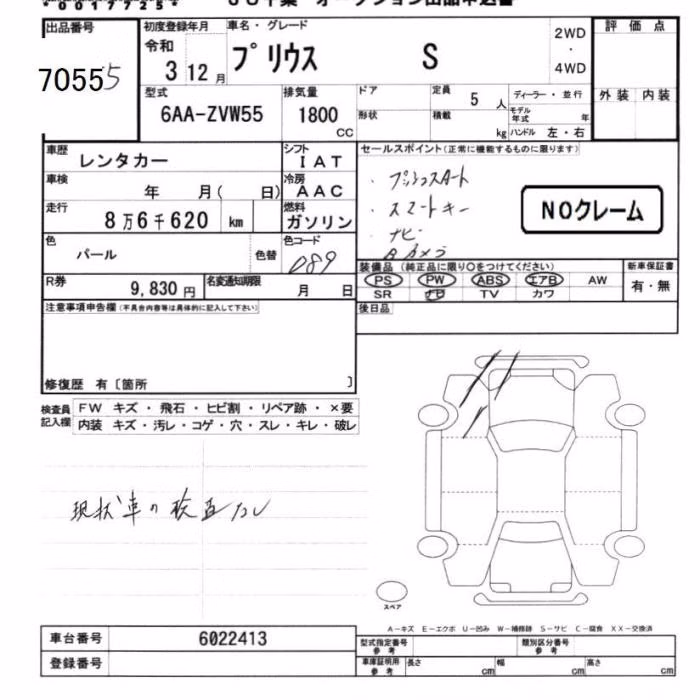 *0017725*
出品番号 初度登録年月 車名・グレード 2WD ・ 4WD 評価点
70555 令和 3 12月 プリウス S
外装 内装
型式 排気量 ドア 定員 5人 ディーラー・並行
6AA-ZVW55 1800 CC 形状 積載 kg モデル年式 年
ハンドル 左・右
車歴 レンタカー シフト IAT セールスポイント(正常に機能するものに限ります)
車検 年 月( 日) 冷房 AAC ・プッシュスタート
・スマートキー
走行 8万6千620 km 燃料 ガソリン ・ナビ
NOクレーム
色 パール 色替 色コード 089 Bカメラ
装備品(純正品に限り○をつけてください) 新車保証書
R券 9,830円 名変通知期限 月 日 PS PW ABS エアB AW 有・無
SR ナビ TV カワ
注意事項申告欄(不具合内容等は具体的に記入して下さい) 後日品
修復歴 有〔箇所 〕
検査員記入欄 FW キズ・飛石・ヒビ割・リペア跡・×要
内装 キズ・汚レ・コゲ・穴・スレ・キレ・破レ
現状車の検査なし
スペア
A-キズ E-エクボ U-凹み W-補修跡 S-サビ C-腐食 XX-交換済
車台番号 6022413 型式指定番号 参考 類別区分番号 参考
登録番号 車庫証明用 参考 長さ cm 幅 cm 高さ cm